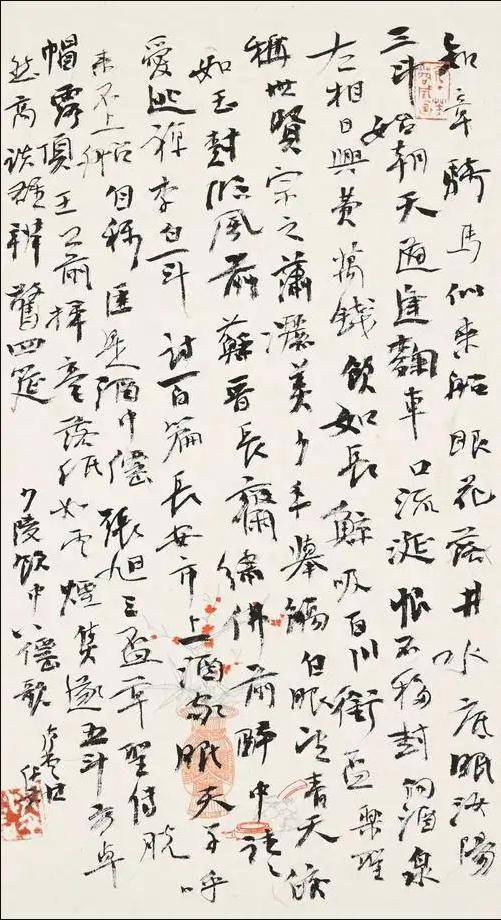 知章騎馬似乘船眼花落井水底眠汝陽
三斗始朝天道逢麴車口流涎恨不移封向酒泉
左相日興費萬錢飲如長鯨吸百川銜盃樂聖
稱世賢宗之瀟灑美少年舉觴白眼望青天皎
如玉樹臨風前蘇晉長齋繡佛前醉中往々
愛逃禪李白一斗詩百篇長安市上酒家眠天子呼
來不上船自稱臣是酒中僊張旭三盃草聖傳脫
帽露頂王公前揮毫落紙如雲煙焦遂五斗方卓
然高談雄辯驚四筵
少陵飲中八僊歌